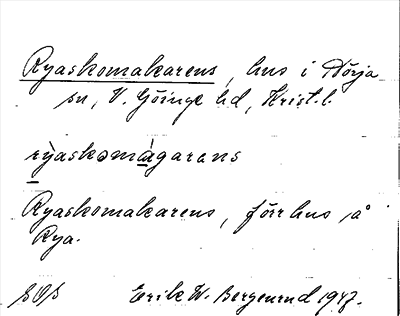 Ryaskomakarens, hus i Nörja
sn, V. Göinge hd, Krist. l.
rỳaskomágarans
Ryaskomakarens, förr hus på
Rya.
SOS Erik W. Bergenrud 1947.